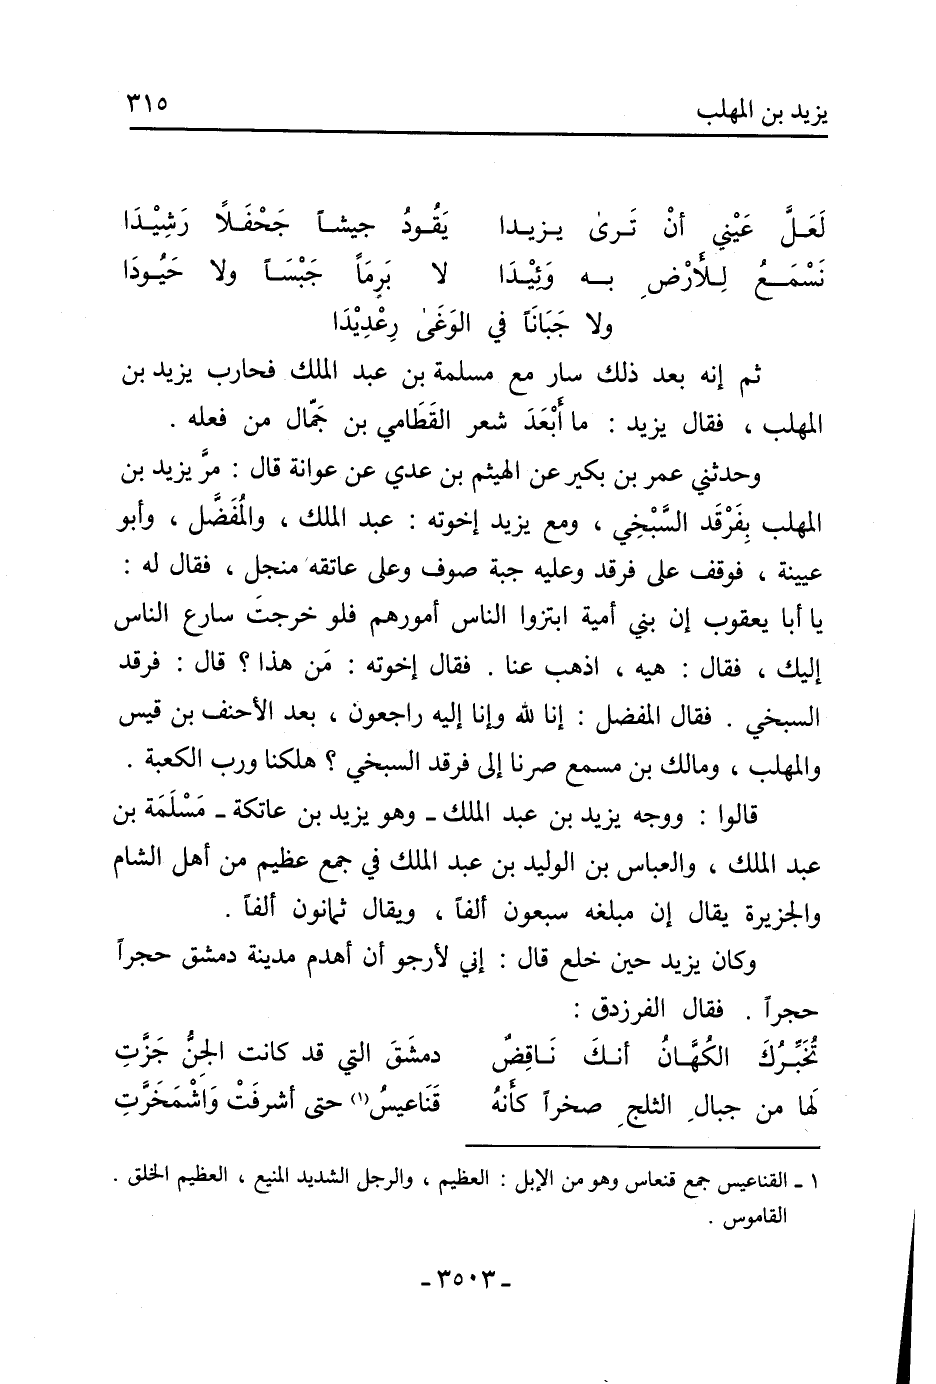 يزيد بن المهلب ٣١٥
لَعَلَّ عَيْني أنْ تَرىٰ يزيدا يَقُودُ جيشاً جَحْفَلاً رَشِيْدَا
نَسْمَعُ لِلأَرْضِ به وَئِيْدَا لا بَرِماً جَبْسَاً ولا حَيُودَا
ولا جَبَانَاً في الوَغَىٰ رِعْدِيْدَا
ثم إنه بعد ذلك سار مع مسلمة بن عبد الملك فحارب يزيد بن
المهلب ، فقال يزيد : ما أَبْعَدَ شعر القَطَامي بن جَمّال من فعله .
وحدثني عمر بن بكير عن الهيثم بن عدي عن عوانة قال : مرَّ يزيد بن
المهلب بِفَرْقَد السَّبْخِي ، ومع يزيد إخوته : عبد الملك ، والمُفَضَّل ، وأبو
عيينة ، فوقف على فرقد وعليه جبة صوف وعلى عاتقه منجل ، فقال له :
يا أبا يعقوب إن بني أمية ابتزوا الناس أمورهم فلو خرجتَ سارع الناس
إليك ، فقال : هيه ، اذهب عنا . فقال إخوته : مَن هذا ؟ قال : فرقد
السبخي . فقال المفضل : إنا لله وإنا إليه راجعون ، بعد الأحنف بن قيس
والمهلب ، ومالك بن مسمع صرنا إلى فرقد السبخي ؟ هلكنا ورب الكعبة .
قالوا : ووجه يزيد بن عبد الملك ـ وهو يزيد بن عاتكة ـ مَسْلَمَة بن
عبد الملك ، والعباس بن الوليد بن عبد الملك في جمع عظيم من أهل الشام
والجزيرة يقال إن مبلغه سبعون ألفاً ، ويقال ثمانون ألفاً .
وكان يزيد حين خلع قال : إني لأرجو أن أهدم مدينة دمشق حجراً
حجراً . فقال الفرزدق :
تُخَبِّرُكَ الكُهَّانُ أنكَ نَاقِضٌ دمشَقَ التي قد كانت الجنُّ جَزَّتِ
لها من جبالِ الثلجِ صخراً كأَنهُ قَنَاعيسُ(١) حتى أشرفَتْ وَاشْمَخَرَّتِ
١ ـ القناعيس جمع قنعاس وهو من الإبل : العظيم ، والرجل الشديد المنيع ، العظيم الخلق .
القاموس .
ـ ٣٥٠٣ ـ